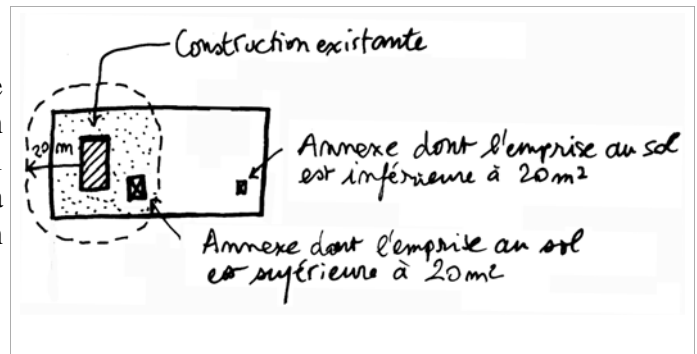 Construction existante
20 m
Annexe dont l'emprise au sol
est inférieure à 20 m²
Annexe dont l'emprise au sol
est supérieure à 20 m²